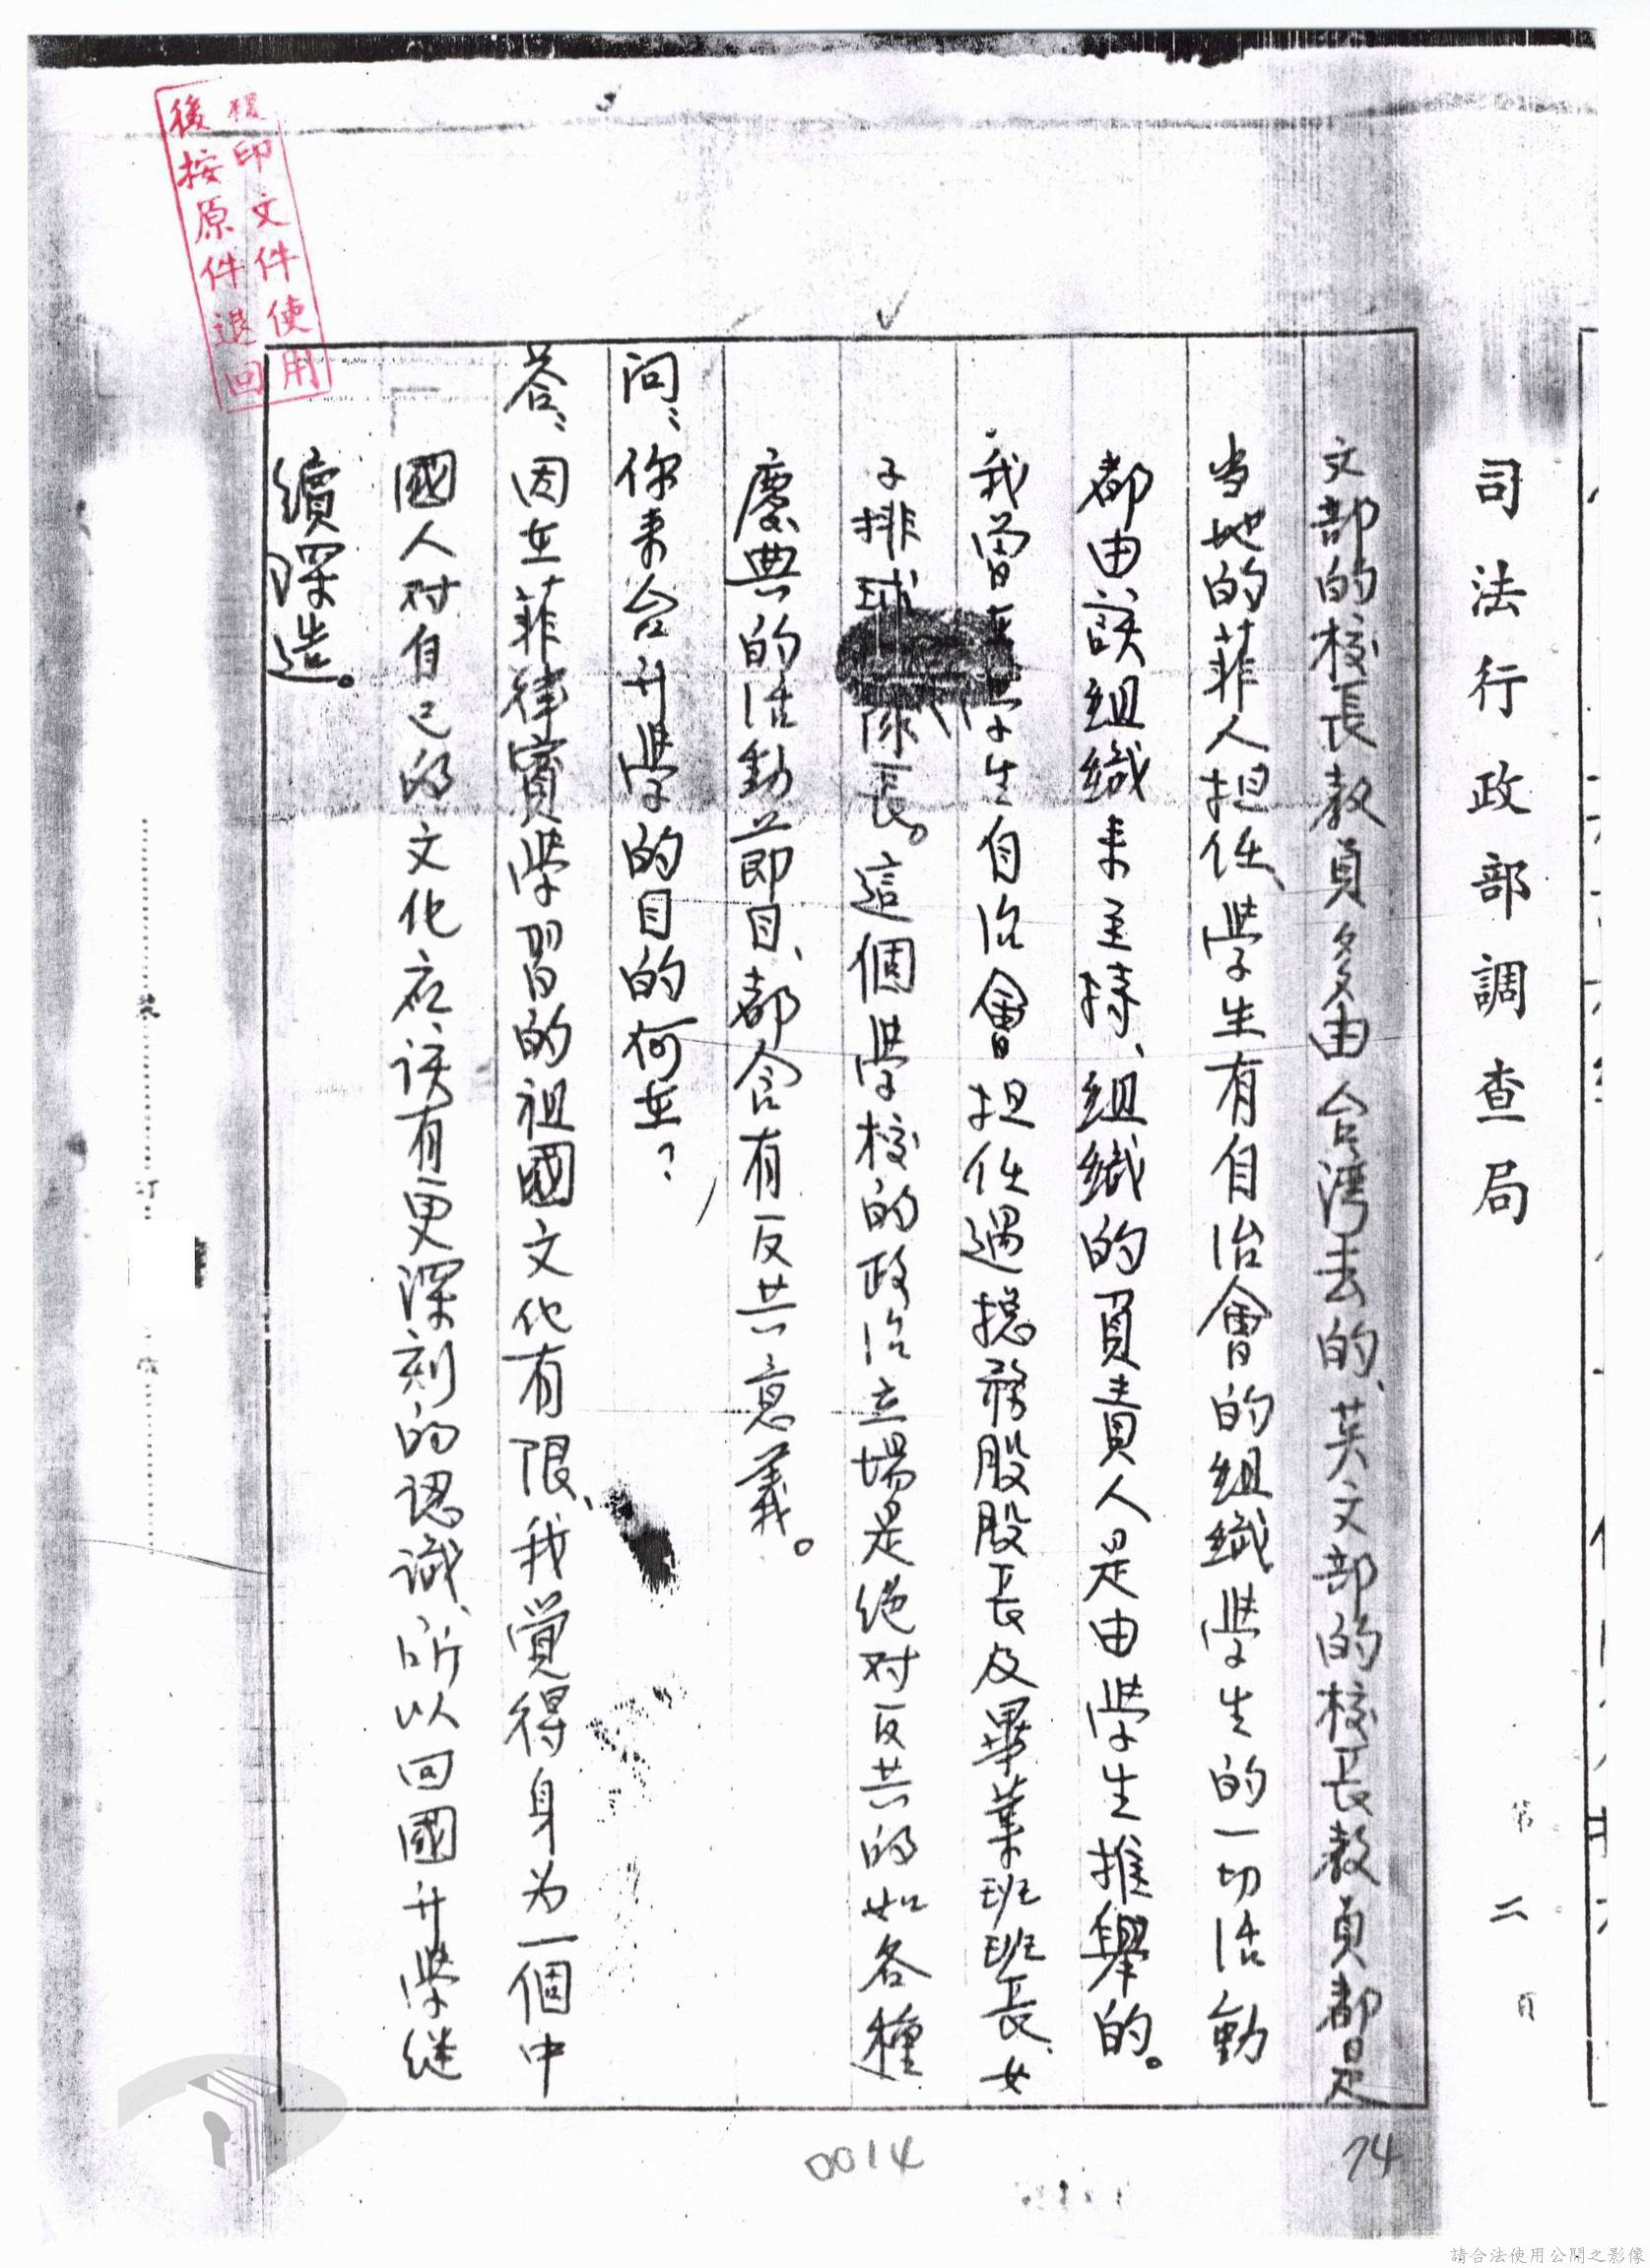 司法行政部調查局
第二頁
文部的校長教員多由台灣去的、英文部的校長教員都是
当地的菲人担任、學生有自治會的組織學生的一切活動
都由該組織来主持、組織的負責人是由學生推舉的。
我曾在學生自治會担任過總務股股長及畢業班班長、女
子排球隊長。這個學校的政治立場是絕对反共的如各種
慶典的活動節目、都含有反共意義。
问：你来台升學的目的何在？
答：因在菲律賓學習的祖國文化有限、我覚得身为一個中
國人对自己的文化应该有更深刻的認識、所以回國升學继
續深造。
印文件使用
後按原件退回
裝
訂
0014
14
請合法使用公開之影像